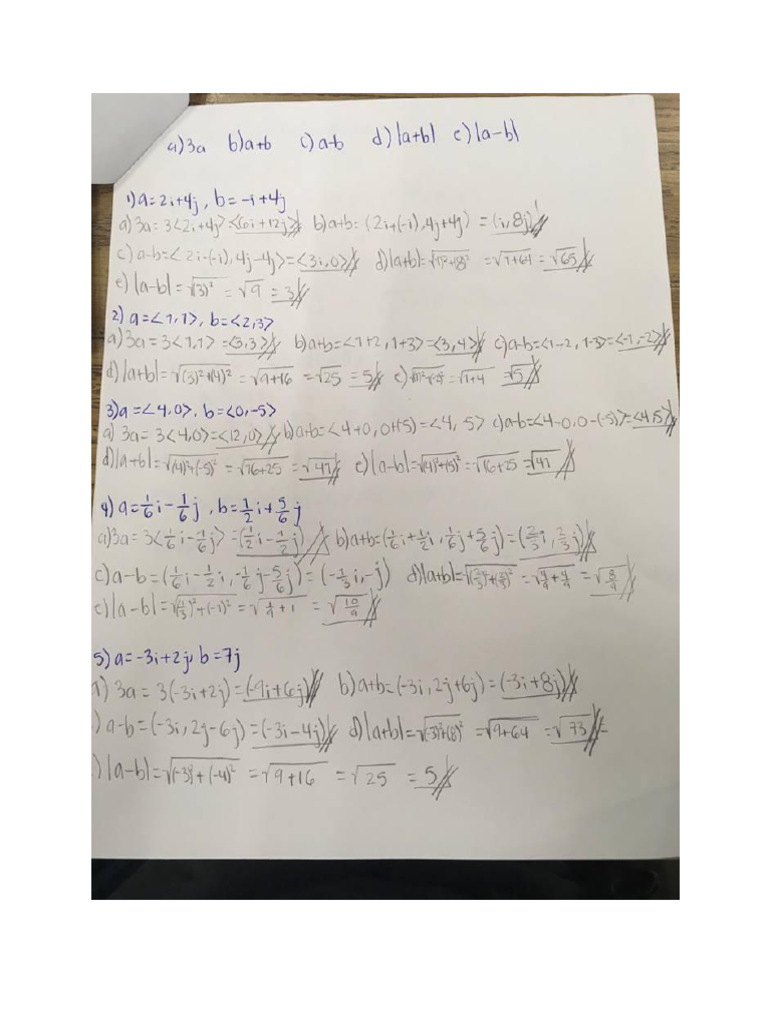 a) 3a b) a+b c) a-b d) |a+b| e) |a-b|
1) a=2i+4j, b=-i+4j
a) 3a=3<2i+4j>=<6i+12j> b) a+b=(2i+(-i), 4j+4j)=(i, 8j)
c) a-b=<2i-(-i), 4j-4j>=<3i, 0> d) |a+b|=√(1)²+(8)² =√1+64 =√65
e) |a-b|=√(3)² =√9 =3
2) a=<1,1>, b=<2,3>
a) 3a=3<1,1>=<3,3> b) a+b=<1+2, 1+3>=<3,4> c) a-b=<1-2, 1-3>=<-1,-2>
d) |a+b|=√(3)²+(4)² =√9+16 =√25 =5 e) =√1+4 =√5
3) a=<4,0>, b=<0,-5>
a) 3a=3<4,0>=<12,0> b) a+b=<4+0, 0+(-5)=<4, 5> c) a-b=<4-0, 0-(-5)>=<4,5>
d) |a+b|=√(4)²+(-5)² =√16+25 =√41 e) |a-b|=√(4)²+(5)² =√16+25 =√41
4) a=1/6i-1/6j, b=1/2i+5/6j
a) 3a=3<1/6i-1/6j>=(1/2i-1/2j) b) a+b=(1/6i+1/2i, 1/6j+5/6j)=(2/3i, 2/3j)
c) a-b=(1/6i-1/2i, -1/6j-5/6j)=(-1/3i, -j) d) |a+b|=√(2/3)²+(2/3)² =√4/9+4/9 =√8/9
e) |a-b|=√(1/3)²+(-1)² =√1/9+1 =√10/9
5) a=-3i+2j, b=7j
a) 3a=3(-3i+2j)=(-9i+6j) b) a+b=(-3i, 2j+6j)=(-3i+8j)
) a-b=(-3i, 2j-6j)=(-3i-4j) d) |a+b|=√(-3)²+(8)² =√9+64 =√73 =
) |a-b|=√(-3)²+(-4)² =√9+16 =√25 =5